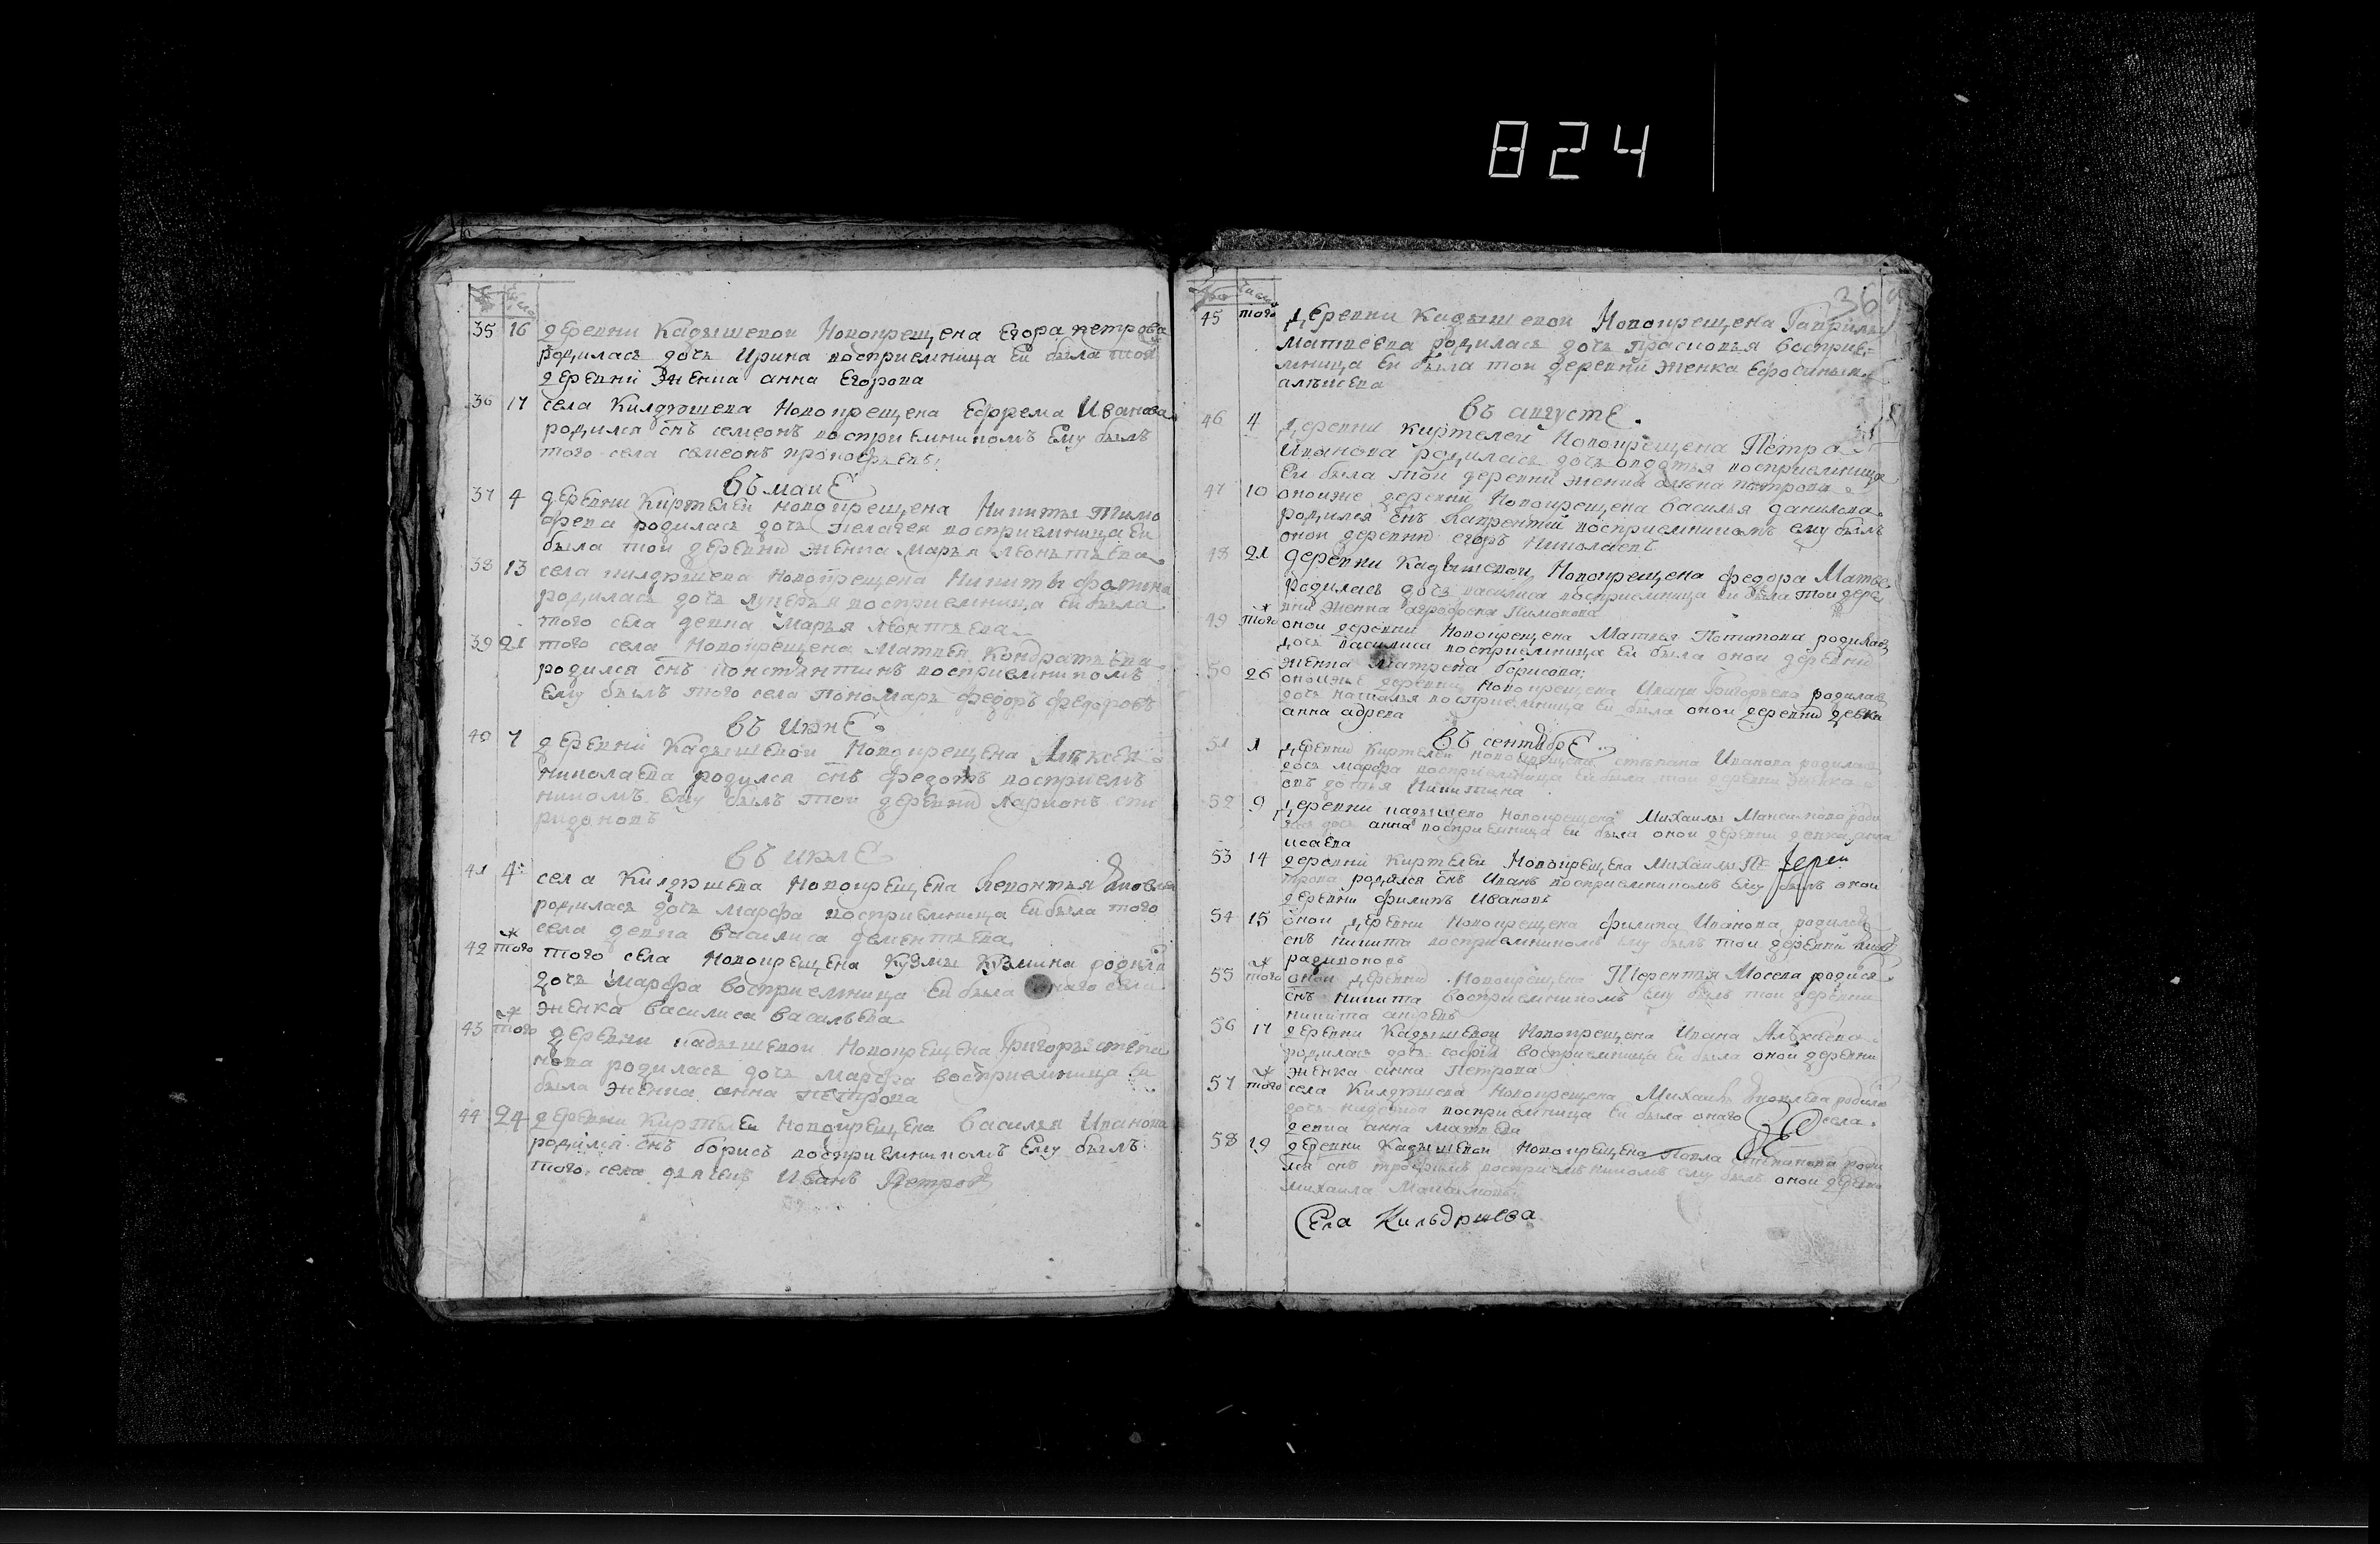 824
36
35 16 деревни Кадышевой Новокрещена Егора петрова
родилась дочь Ирина восприемница ей была той
деревни Женка анна Егорова
36 17 села Килдюшева Новокрещена Ефрема Иванова
родился снъ семеонъ восприемникомъ Ему былъ
того села семеонъ прокофьевъ
въ маиЕ
37 4 деревни Киртелей новокрещена Никиты тимо
феева родилась дочь Пелагея восприемница Ей
была той деревни женка Марья леонтьева
38 13 села килдюшева Новокрещена Никиты
родилась дочь лукерья восприемница Ей была
того села девка Марья леонтьева
39 21 того села Новокрещена Матвея Кондратьева
родился снъ Константинъ восприемникомъ
Ему былъ того села пономарь федоръ федоровъ
въ июнЕ
40 7 деревни Кадышевой Новокрещена Алексея
николаева родился снъ федотъ восприем
никомъ Ему былъ той деревни ларионъ спи
ридоновъ
въ июлЕ
41 4 села Килдюшева Новокрещена Леонтья Яковлева
родилась дочь марфа восприемница Ей была того
села девка василиса дементьева
42 того того села Новокрещена Кузмы Кузмина
дочь марфа восприемница Ей была онаго села
женка василиса васильева
43 того деревни кадышевой Новокрещена Григорья степа
нова родилась дочь марфа восприемница Ей
была женка анна петрова
44 24 деревни Киртелей Новокрещена василья Иванова
родился снъ борисъ восприемникомъ Ему былъ
того села дьячекъ Иванъ Петровъ
45 того деревни Кадышевой Новокрещена Гаврилы
матвеева родилась дочь прасковья восприе=
мница Ей была той деревни женка Ефросинья
алексева
въ августЕ
46 4 деревни киртелей Новокрещена Петра
Иванова родилась дочь евдотья восприемница
Ей была той деревни женка петрова
47 10 оной же деревни Новокрещена василья данилова
родился снъ лаврентий восприемникомъ ему былъ
оной деревни егоръ Николаевъ
48 21 деревни Кадышевой Новокрещена федора Матве
родилась дочь василиса восприемница ей была той дере
вни женка агрофена
49 того оной деревни Новокрещена Матвея Потапова родилась
дочь василиса восприемница Ей была оной деревни
женка Матрена борисова
50 26 оной же деревни Новокрещена Ивана Григорьева родилась
дочь наталья восприемница Ей была оной деревни девка
анна
въ сентябрЕ
51 1 деревни Киртелей новокрещена степана Иванова родилась
дочь марфа восприемница Ей была той деревни женка
евдотья Никитина
52 9 деревни Новокрещена Михаилы Максимова роди
лась дочь анна восприемница Ей была оной деревни девка
исаева
53 14 деревни киртелей Новокрещена Михаилы Пе
трова родился снъ Иванъ восприемникомъ Ему былъ оной
деревни филипъ Ивановъ
54 15 оной деревни Новокрещена филипа Иванова родился
снъ никита восприемникомъ Ему былъ той деревни
55 того оной деревни Новокрещена Терентья родился
снъ никита восприемникомъ Ему былъ той деревни
никита
56 17 деревни Кадышевой Новокрещена Ивана Алексеева
родилась дочь софья восприемница Ей была оной деревни
женка анна Петрова
57 того села Килдюшева Новокрещена Михаила Яковлева родила
дочь восприемница Ей была онаго села
девка анна матвева
58 19 деревни Кадышевой Новокрещена Павла степанова роди
лся снъ трофимъ восприемникомъ Ему былъ оной деревни
михаила Максимовъ
Села Кильдюшева